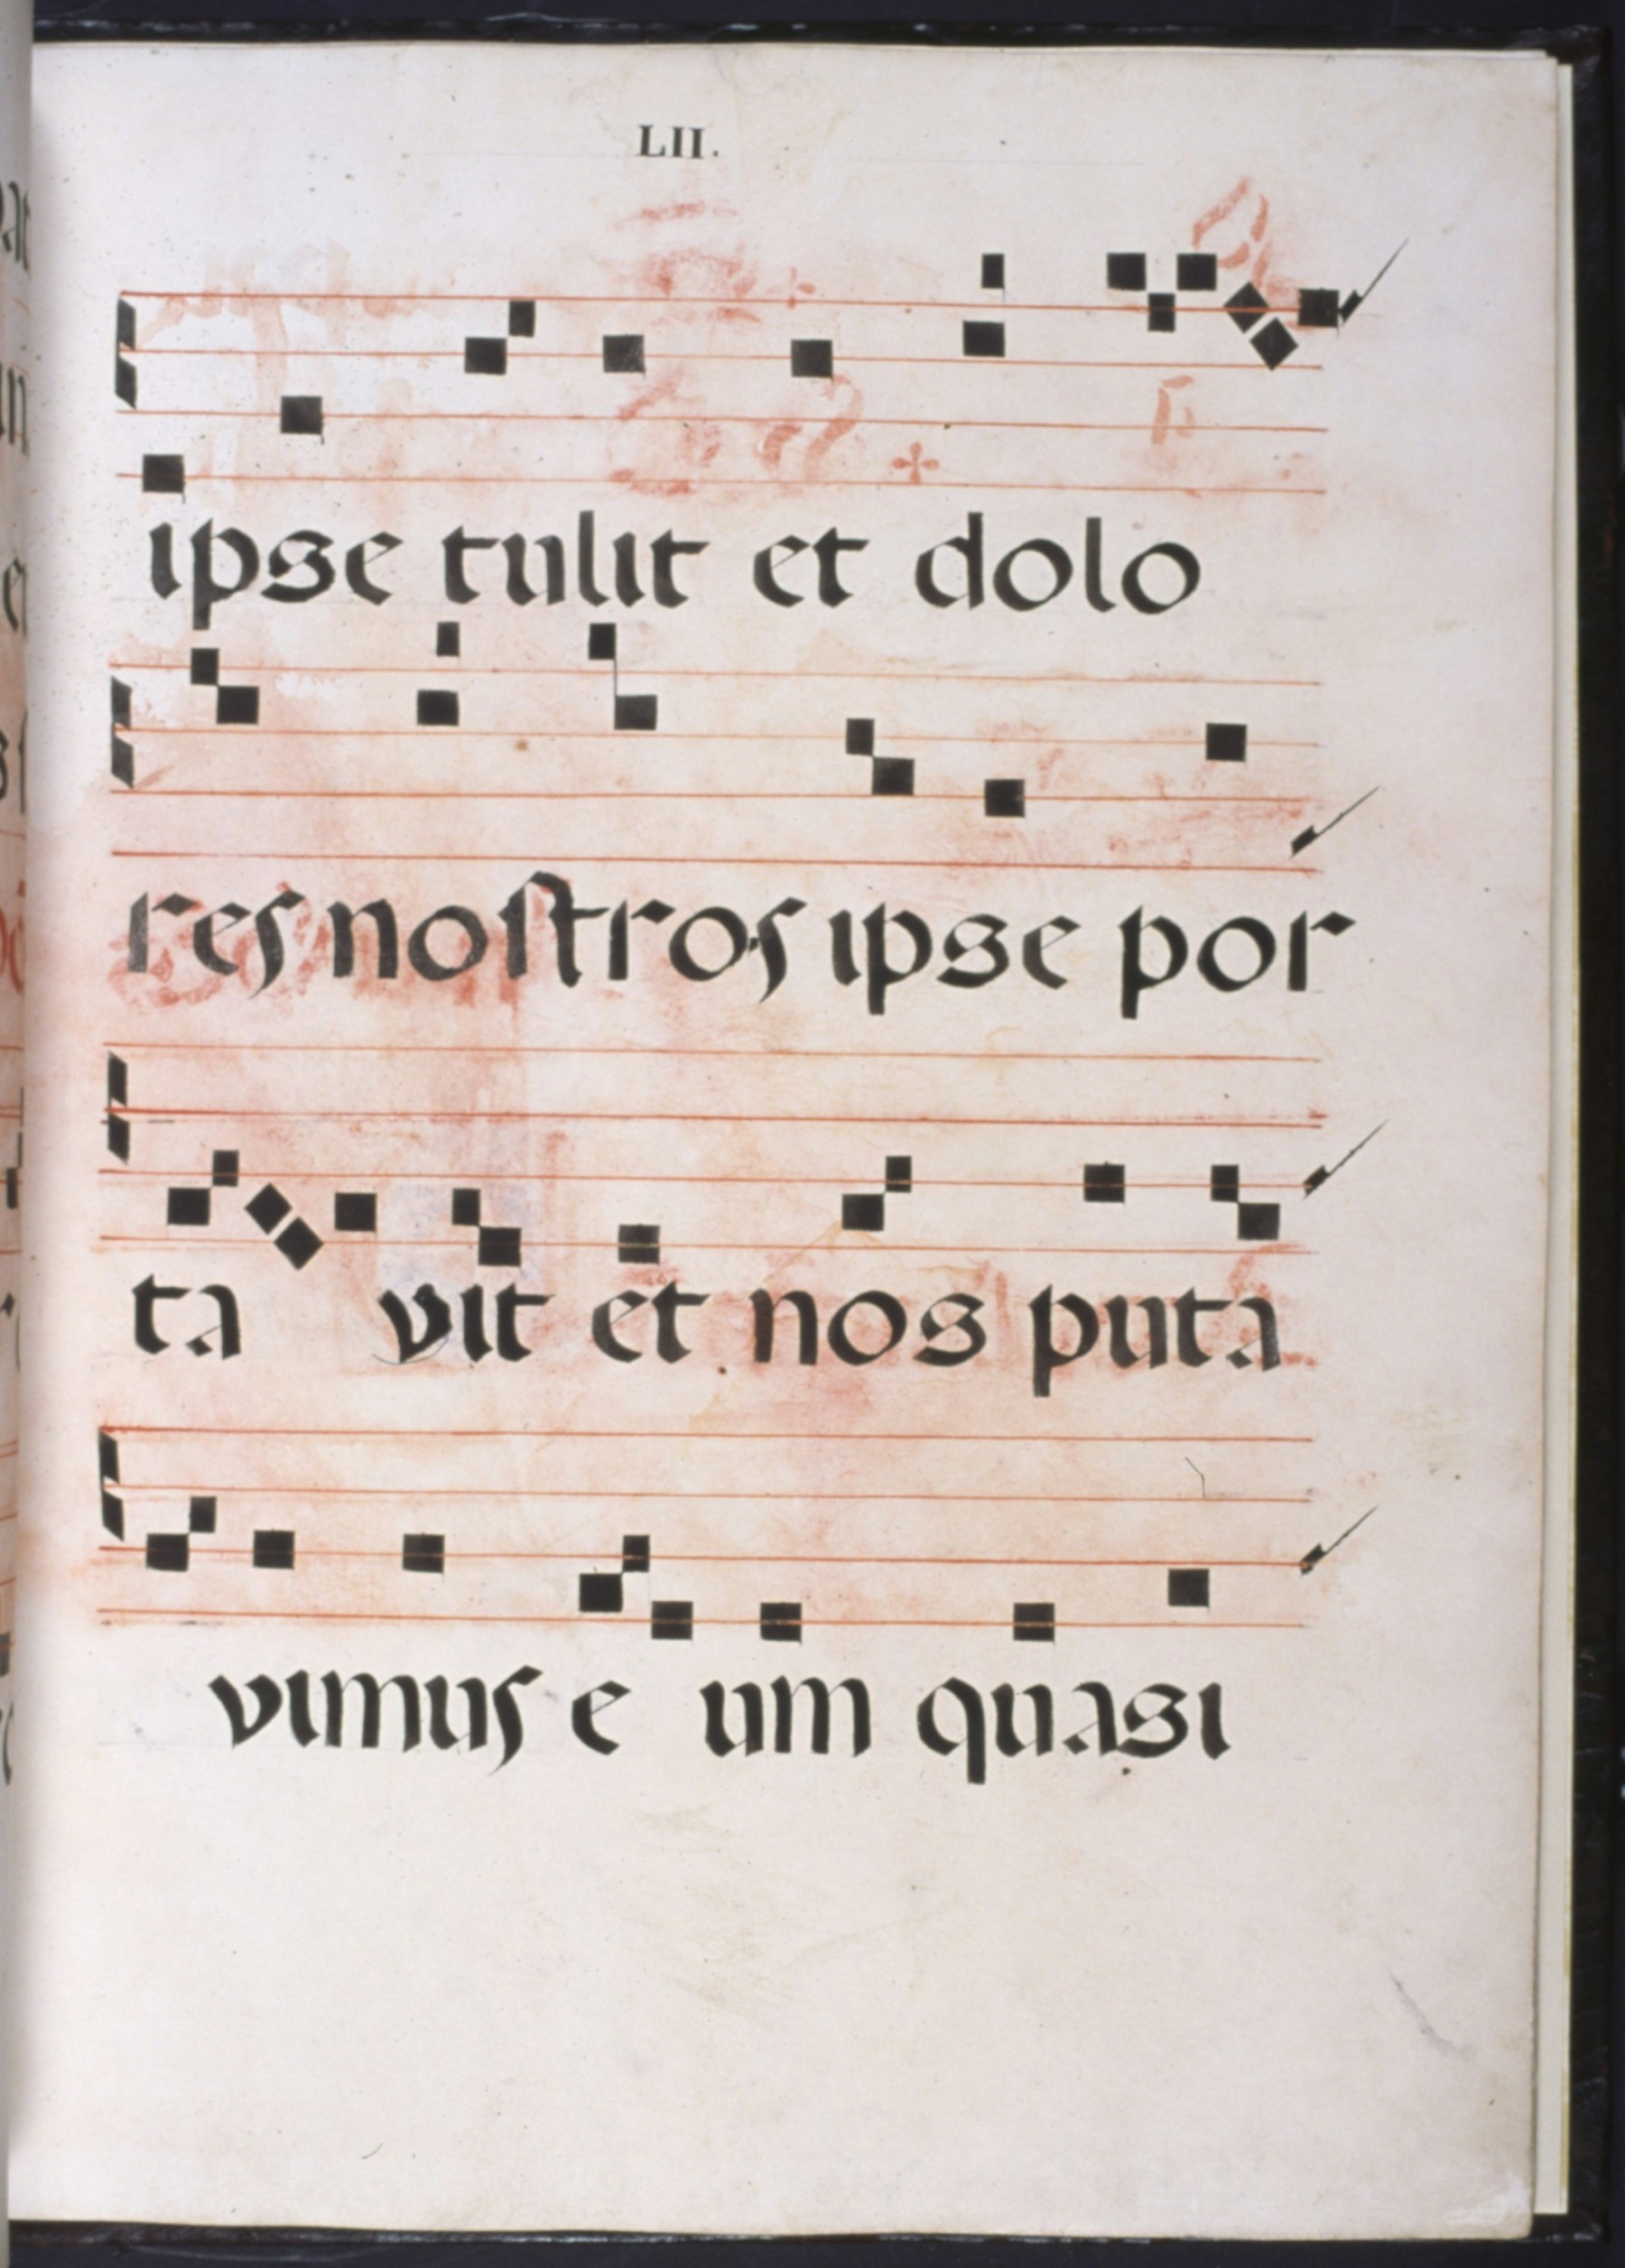 LII.
ipse tulit et dolo
res nostros ipse por
ta vit et nos puta
vimus e um quasi